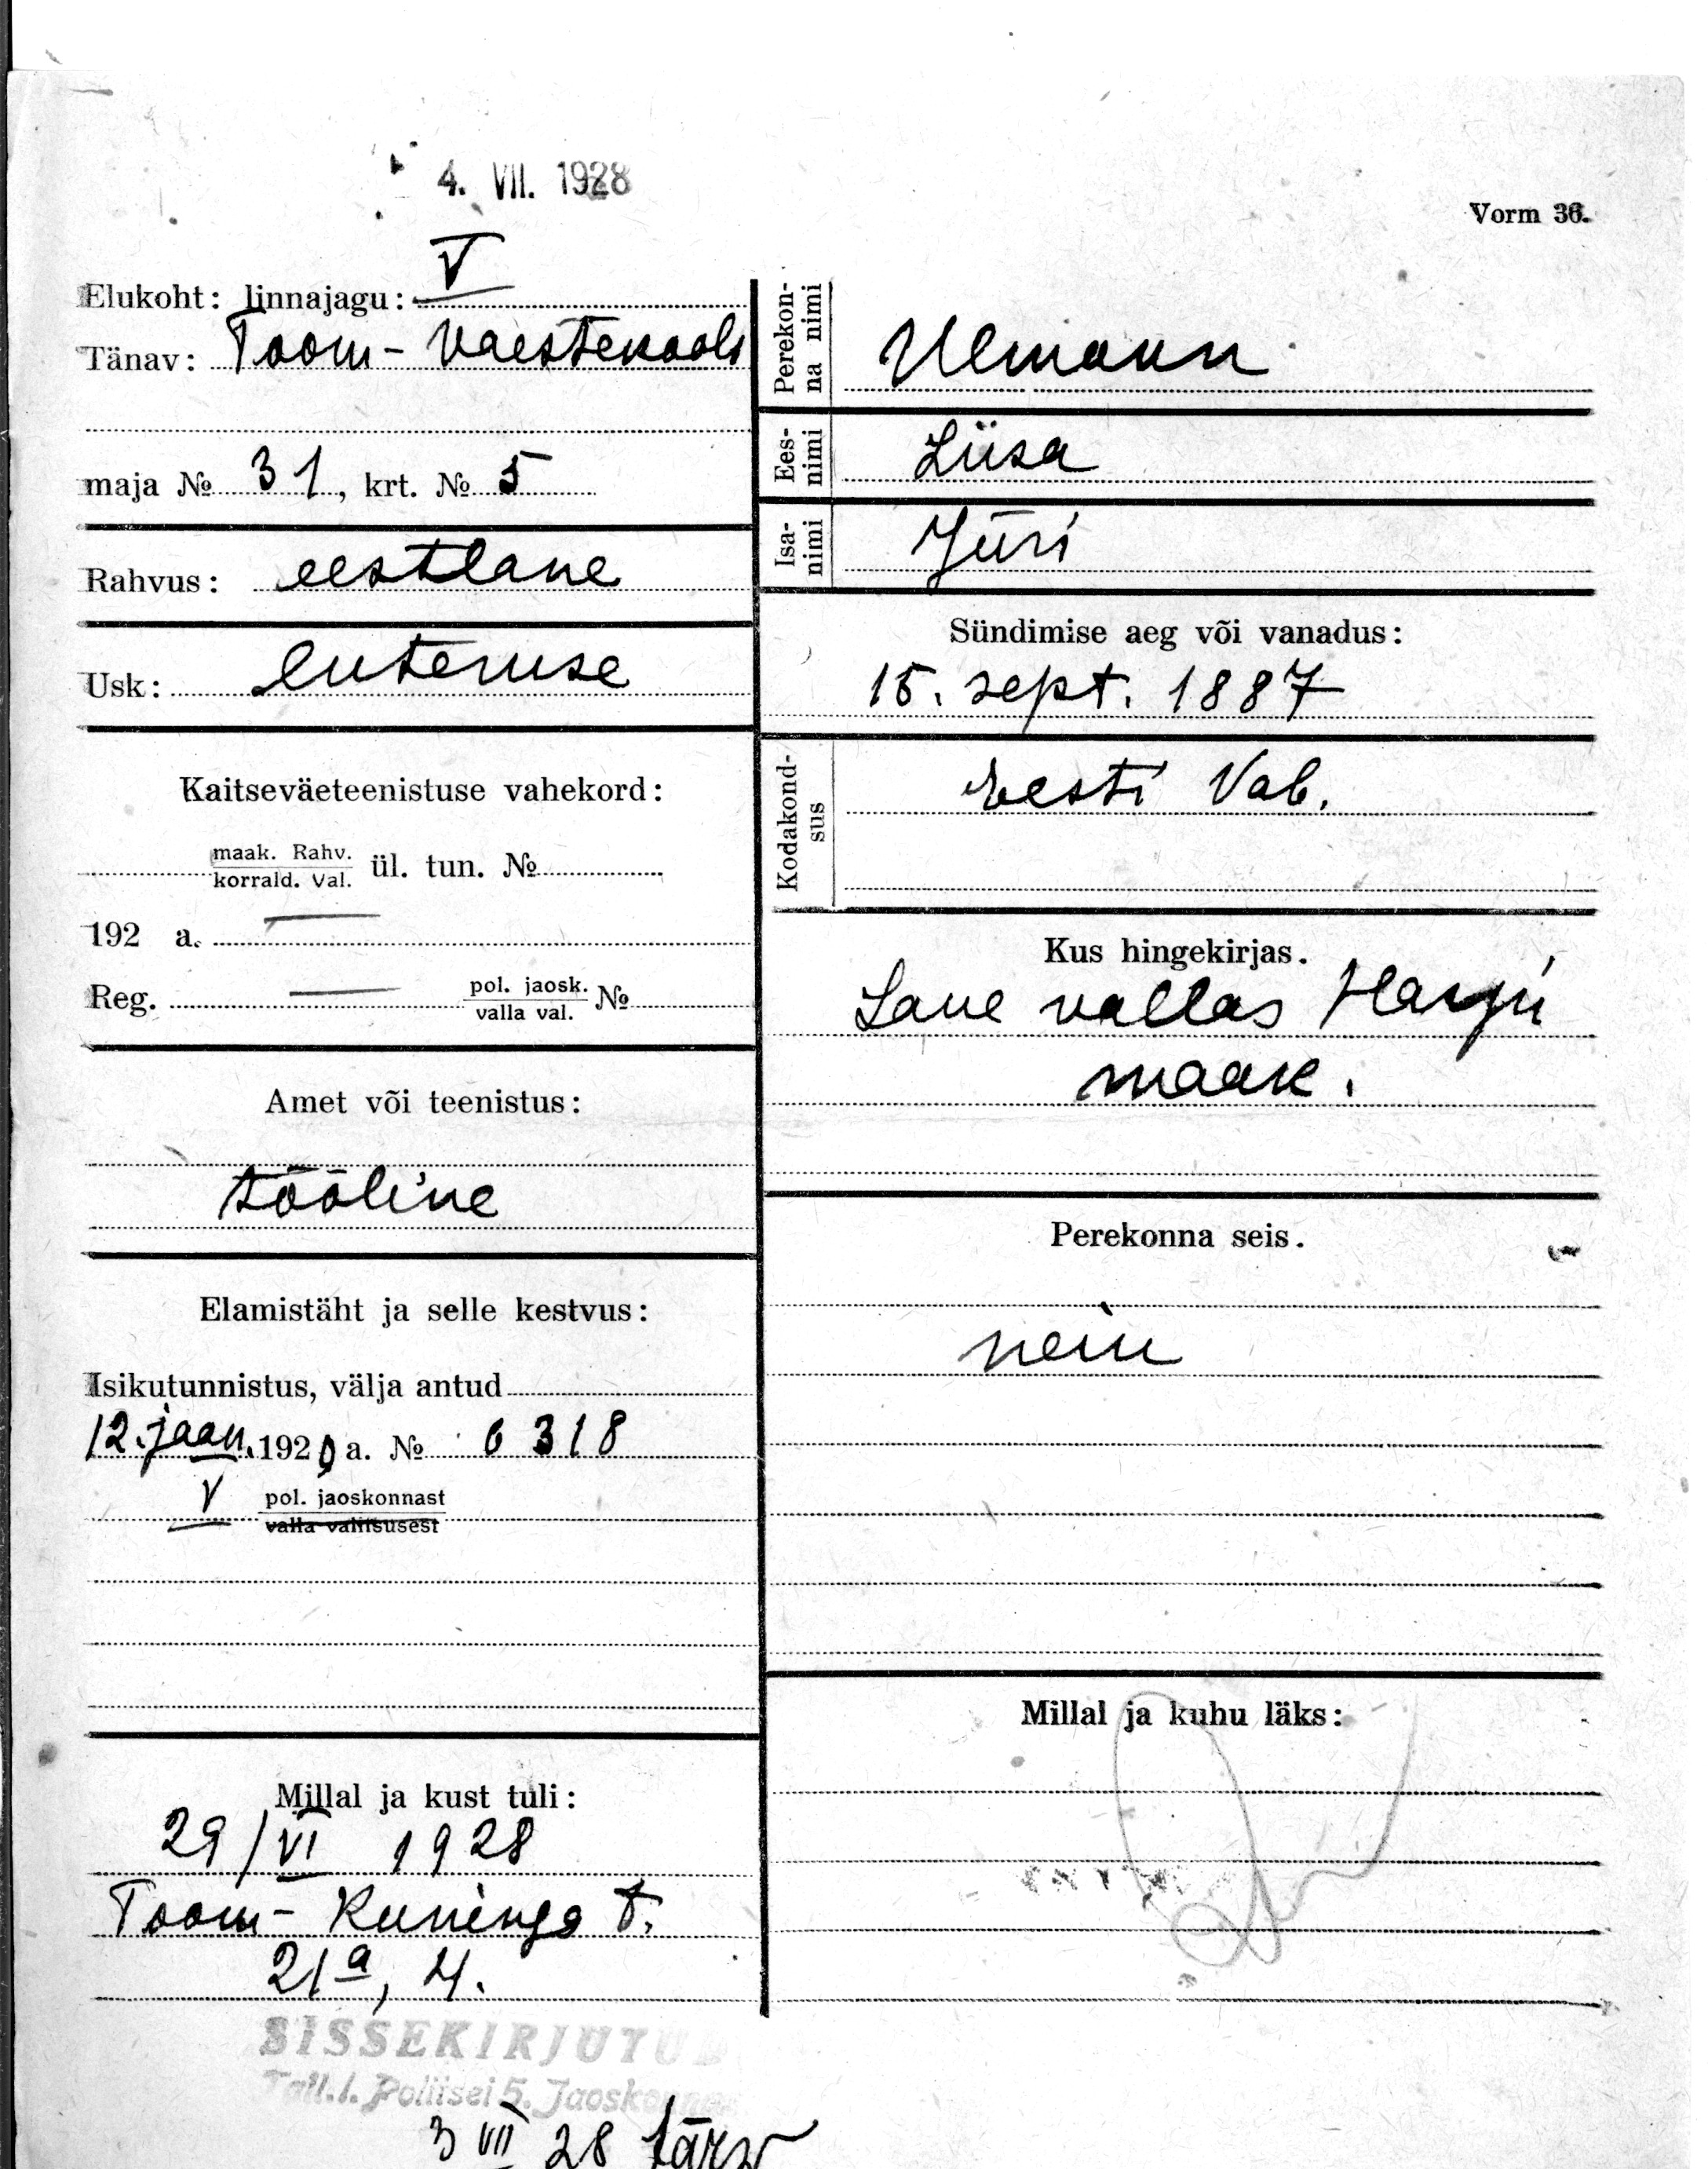 4. VII. 1928
Vorm 36.
Elukoht: linnajagu: V
Tänav: Toom-Vaestekooli
maja № 31, krt. № 5
Rahvus: eestlane
Usk: luteruse
Kaitseväeteenistuse vahekord:
maak. Rahv.
korrald. Val. ül. tun. №
192 a. —
Reg. — pol. jaosk.
valla val. №
Amet või teenistus:
tööline
Elamistäht ja selle kestvus:
Isikutunnistus, välja antud
12. jaan. 1920 a. № 6318
V pol. jaoskonnast
valla valitsusest
Millal ja kust tuli:
29/VI 1928
Toom-Kuninga t.
21a, 4.
SISSEKIRJUTU
Tall. l. Politsei 5. Jaoskonnas
3 VII 28
Perekon-
na nimi
Ulmann
Ees-
nimi
Liisa
Isa-
nimi
Jüri
Sündimise aeg või vanadus:
15. sept. 1887
Kodakond-
sus
Eesti Vab.
Kus hingekirjas.
vallas Harju
maak.
Perekonna seis.
neiu
Millal ja kuhu läks: